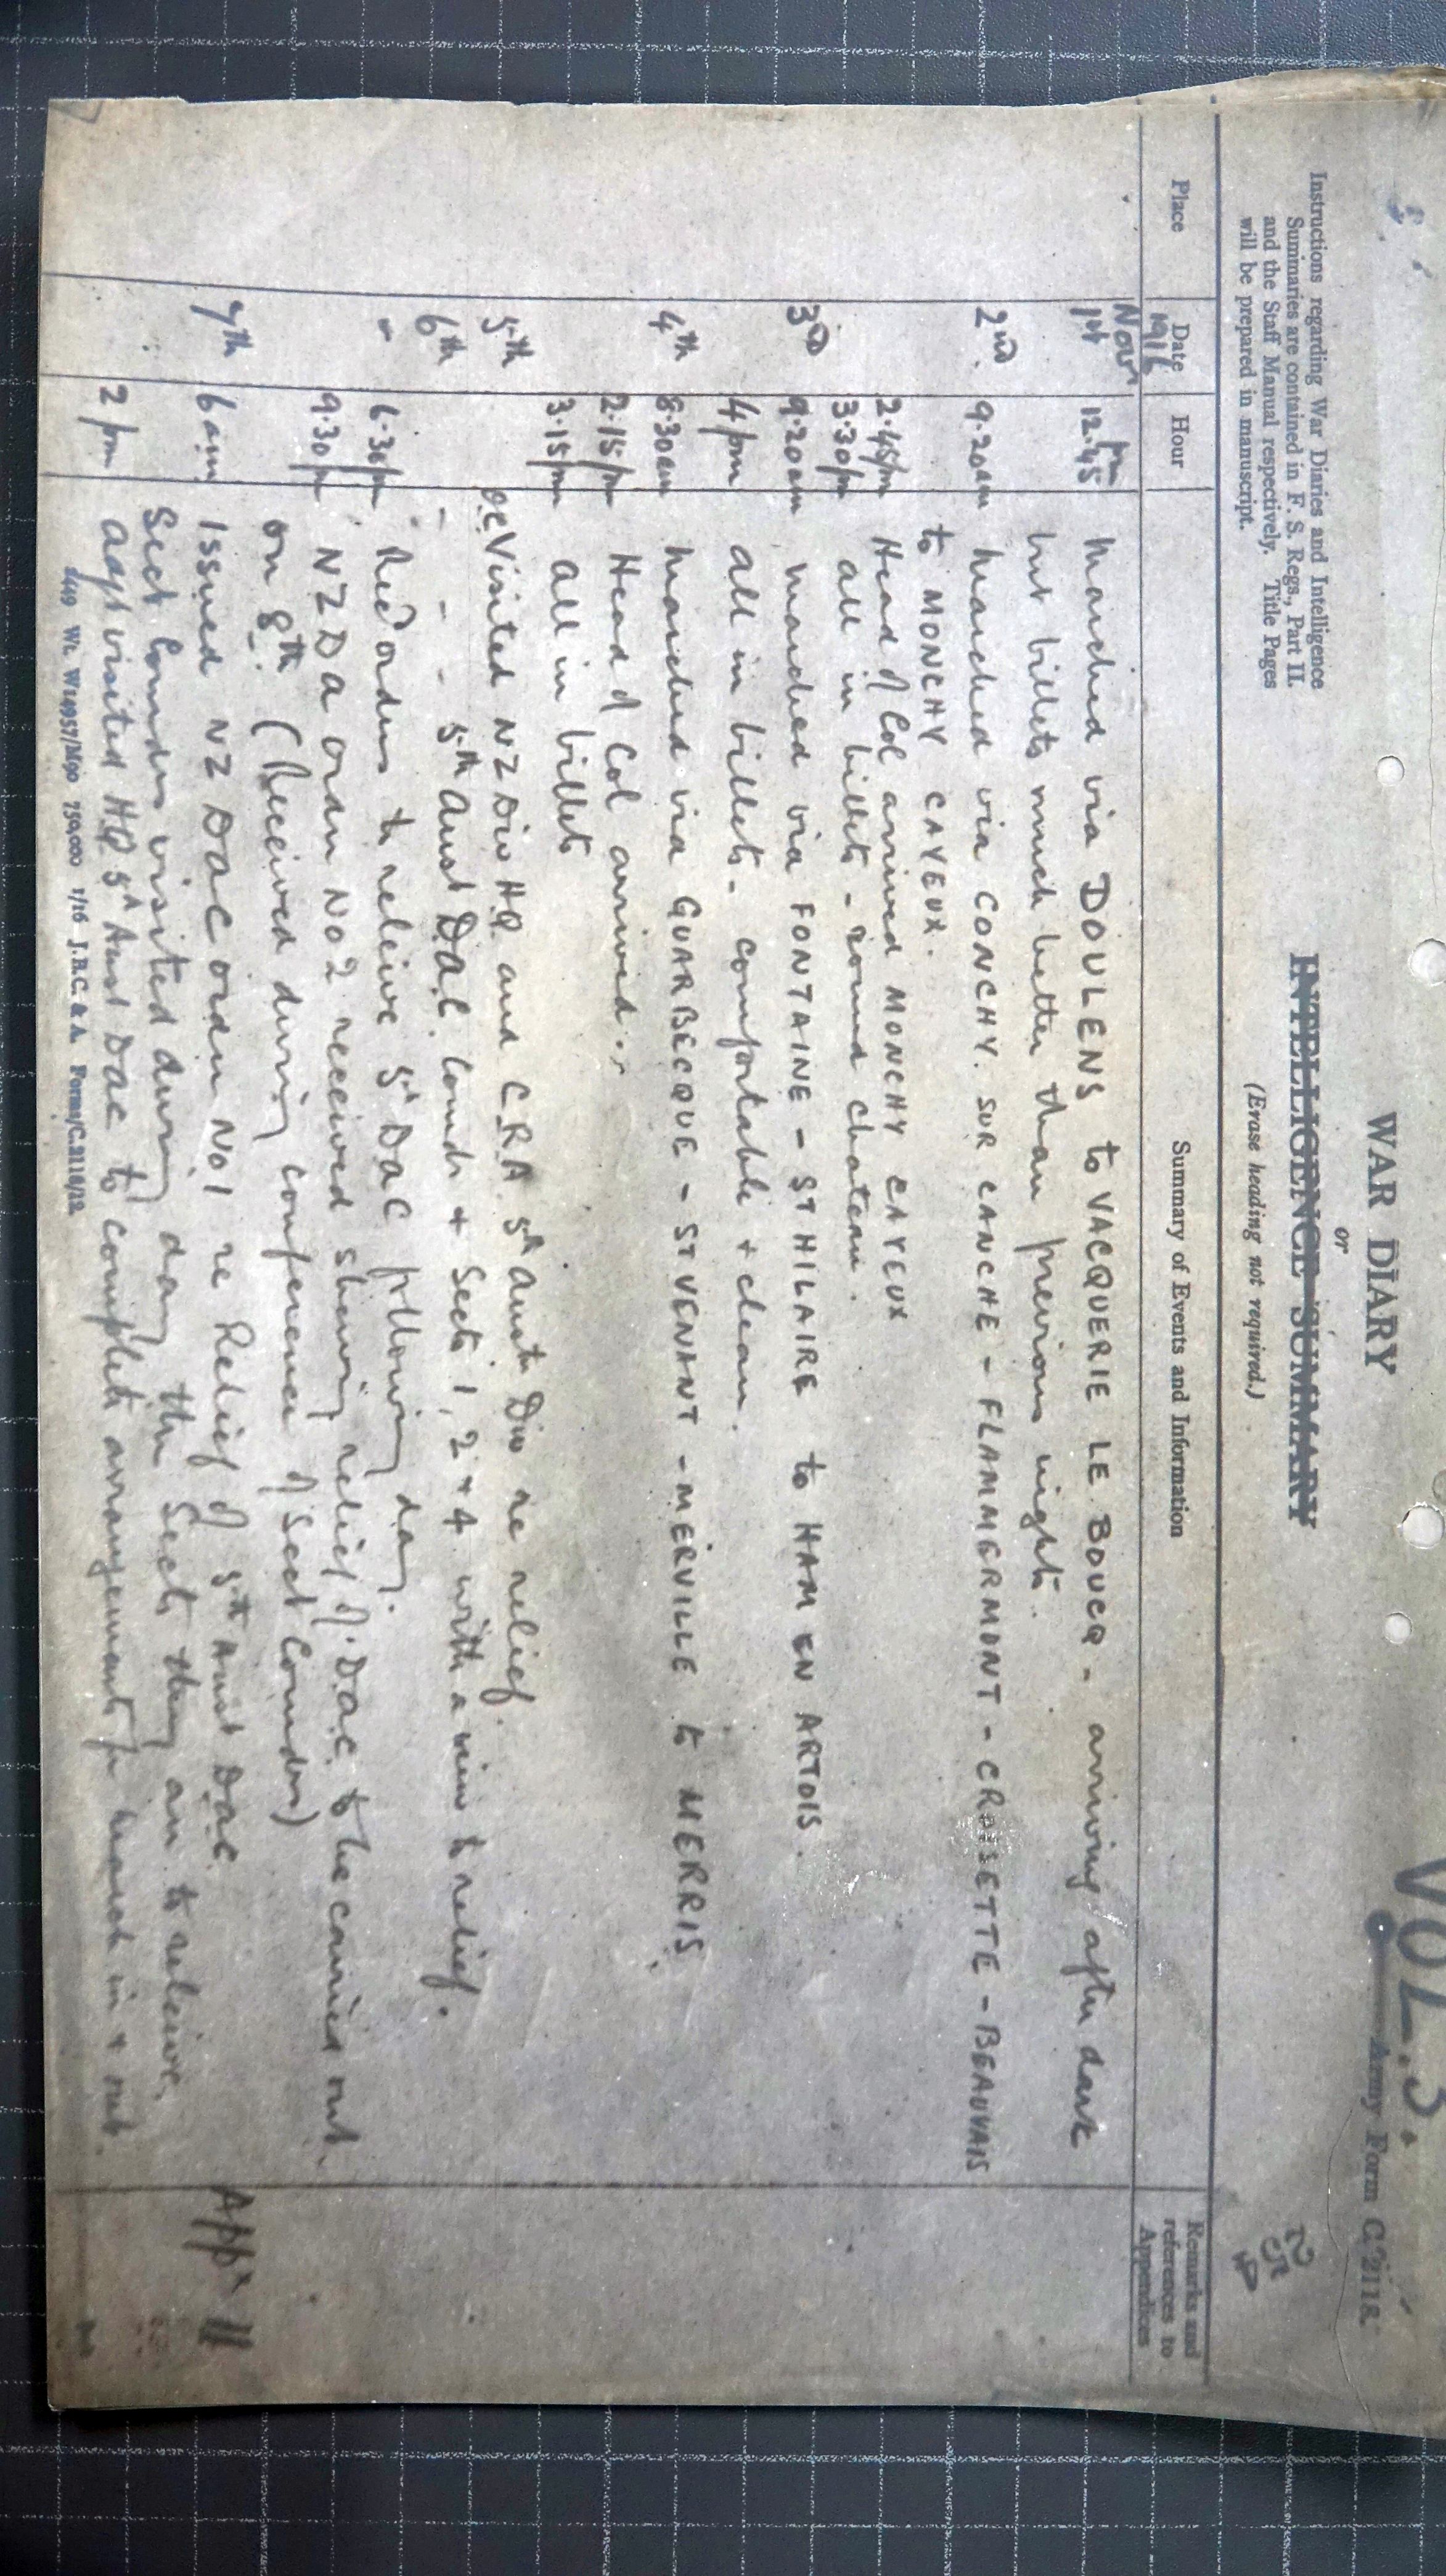 VOL. 3.
Army Form C. 2118.
WAR DIARY
or
INTELLIGENCE SUMMARY
(Erase heading not required.)
Instructions regarding War Diaries and Intelligence
Summaries are contained in F. S. Regs., Part II.
and the Staff Manual respectively. Title Pages
will be prepared in manuscript.
Place Date Hour Summary of Events and Information Remarks and references to Appendices
Novr 1916
1st 12.45 pm Marched via DOULENS to VACQUERIE LE BOUCQ - arriving after dark
but billets much better than previous night.
2nd. 9.20am Marched via CONCHY. SUR CANCHE - FLAMMERMONT - CROISETTE - BEAUVAIS
to MONCHY CAYEUX.
2.45pm Head of Col arrived MONCHY CAYEUX
3.30pm all in billets - round chateau.
3rd 9.20am Marched via FONTAINE - ST HILAIRE to HAM EN ARTOIS.
4pm all in billets - comfortable + clean.
4th 8.30am Marched via GUARBECQUE - ST VENANT - MERVILLE to MERRIS
2.15pm Head of Col arrived.
3.15pm All in billets
5th OC Visited NZ Div HQ and CRA 5th Aust Div re relief.
6th - - - 5th Aust DAC Comdr + Sects 1, 2 + 4 with a view to relief.
" 6.30pm Recd orders to relieve 5th DAC following day.
9.30pm NZDA order No 2 received showing relief of DAC to be carried out
on 8th. (Received during conference of Sect Comdrs)
7th 6am Issued NZ DAC order No 1 re Relief of 5th Aust DAC. Appx 11
Sect Comdrs visited during day the Sects they are to relieve.
2pm Adjt visited HQ 5th Aust DAC to complete arrangements for march in + out.
2449 Wt. W14957/M90 750,000 1/16 J.B.C. & A. Forms/C.2118/12